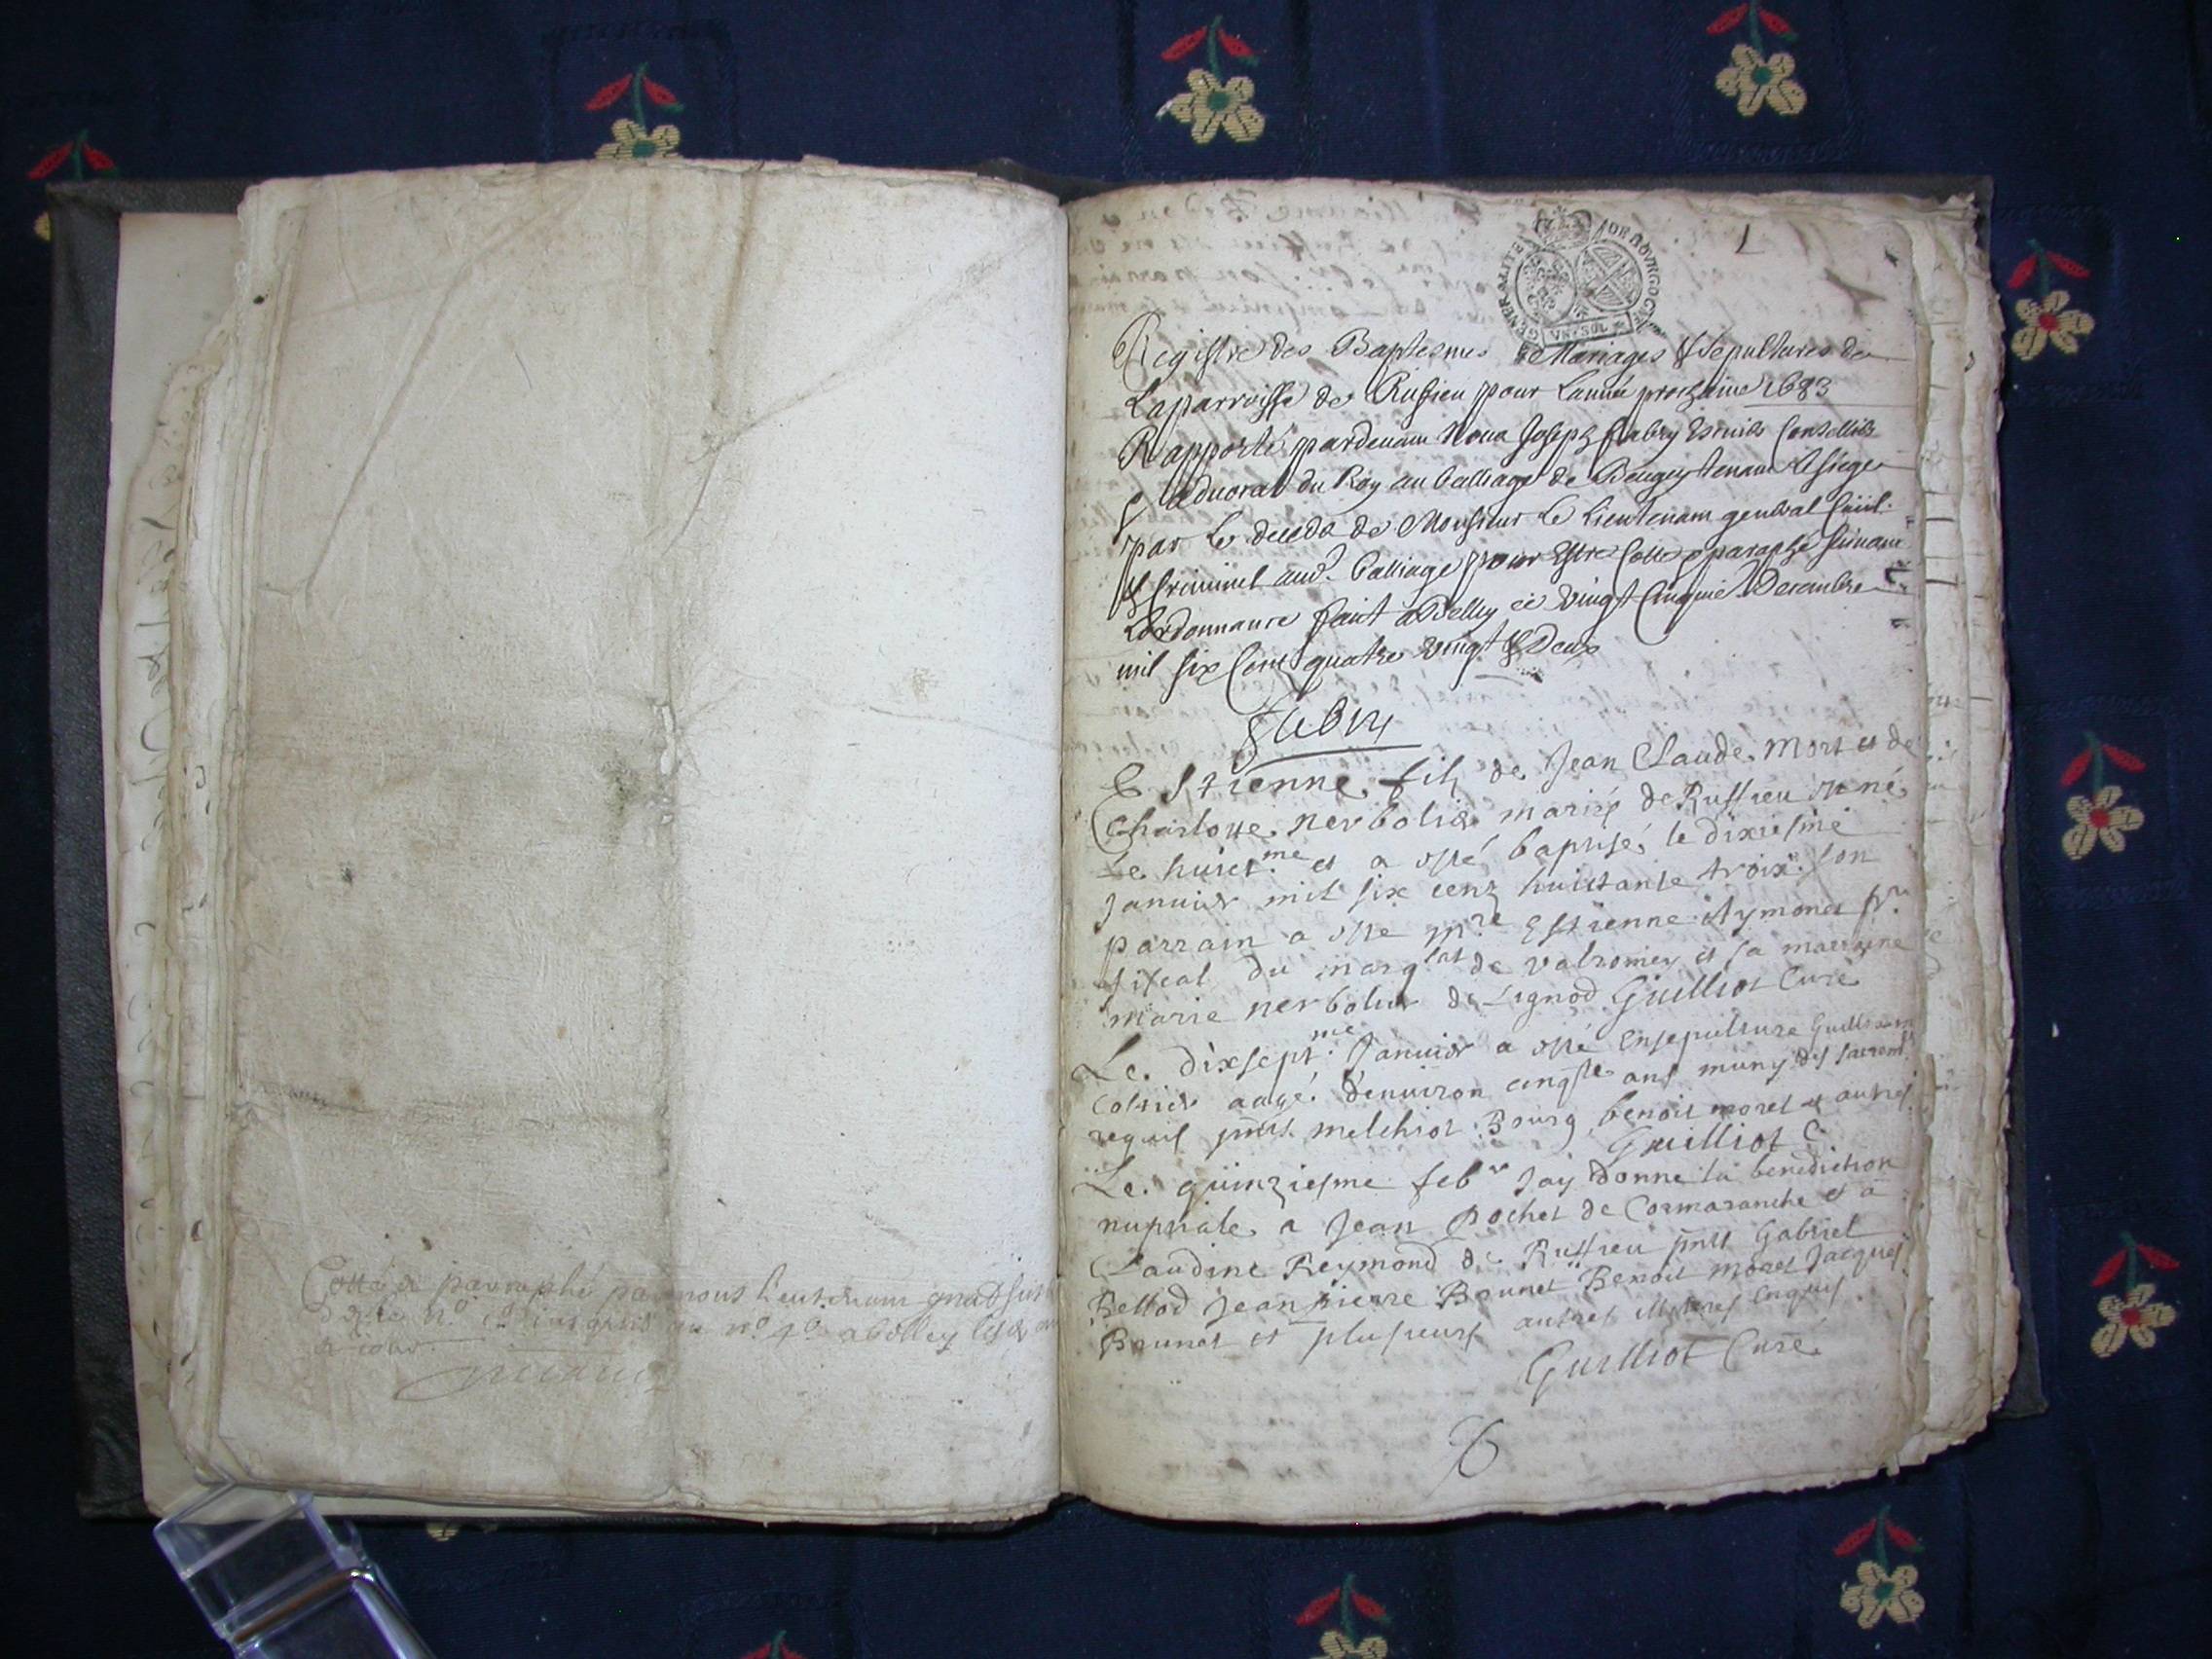 Cotté et paraphé par nous Lieutenant gnal
n.o 1.er jusques au n.o 4.o a belley les
et jour
1
GENERALITE DE BOVRGOGNE
VN SOL
Registre des Baptesmes Mariages & Sepultures de
La parroisse de Ruffieu pour Lannée prochaine 1683
Rapporté pardevant Nous Joseph Fabry Conseiller
& advocat du Roy au balliage de Beugey tenant le siege
par le deceds de Monsieur le Lieutenant general Civil
& Criminel aud. balliage pour estre Cotté & paraphé suivant
Lordonnance fait a Belley ce vingt Cinquie Decembre
mil six Cent quatre vingt & Deux
Fabry
Estienne fils de Jean Claude Moret et de
Charlotte nerbolier mariés de Ruffieu est né
Le huict.me et a esté baptisé le dixiesme
Januier mil six cens huictante trois son
parrain a esté m.re Estienne Aymonet
fiscal du marq.sat de valromey et sa marraine
marie nerbolier de Lignod Guilliot Curé
Le dixsept.me Januier a esté Ensepulturé
aagé denuiron cinq.te ans muny des sacrem.ts
requis pnts melchiot Bourg benoit moret et autres
Guilliot C.
Le quinziesme feb.r Jay donne la benediction
nuptiale a Jean Rochet de Cormaranche et a
Claudine Reymond de Ruffieu pnts Gabriel
Bellod Jean pierre Brunet Benoit moret Jacques
Brunet et plusieurs autres illiteres Enquis
Guilliot Curé